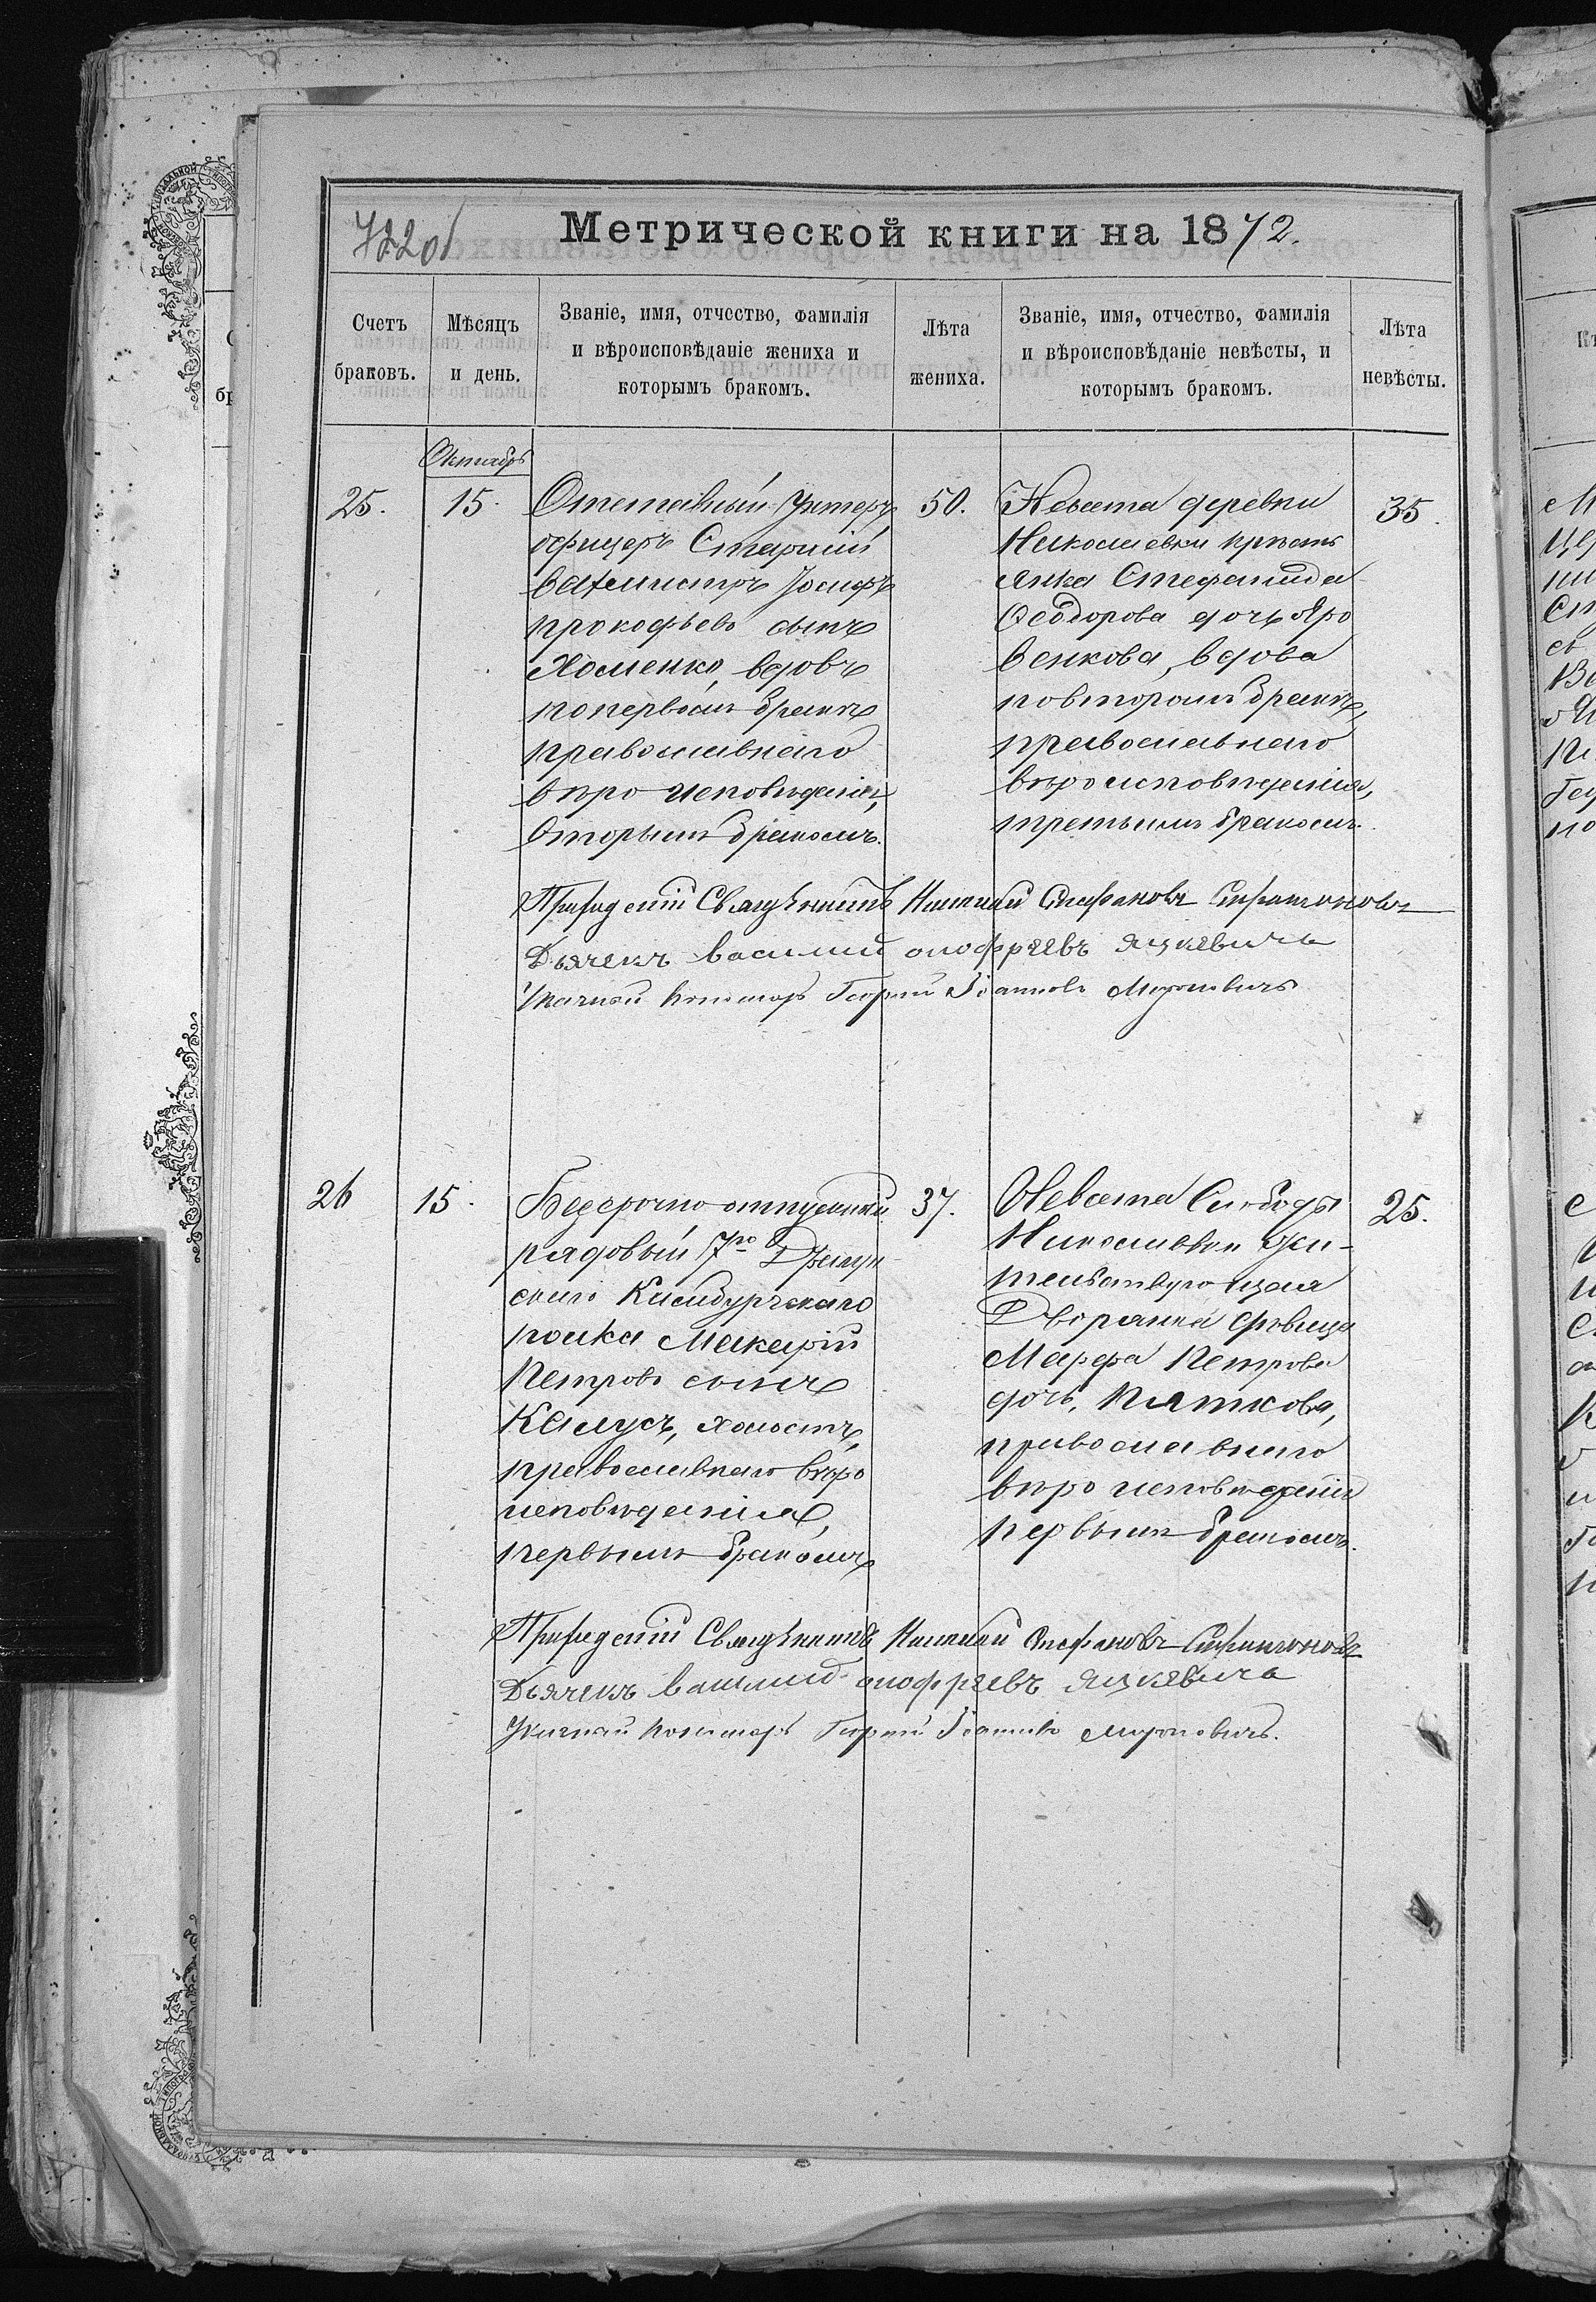 722об
Метрической книги на 1872.
Счетъ браковъ.
Мѣсяцъ и день.
Званіе, имя, отчество, фамилія и вѣроисповѣданіе жениха и которымъ бракомъ.
Лѣта жениха.
Званіе, имя, отчество, фамилія и вѣроисповѣданіе невѣсты, и которымъ бракомъ.
Лѣта невѣсты.
Октябрь
25.
15.
Отставный Унтеръ
офицеръ Старший
Вахмистръ Іосифъ
Прокофьевъ сынъ
Хоменко, вдовъ
по первомъ бракѣ
православнаго
вѣро исповѣданія,
вторымъ бракомъ.
50.
Невѣста деревни
Николаевки крестъ
янка Стефанида
Феодорова дочь Яро
венкова, вдова
по второмъ бракѣ,
православнаго
вѣроисповѣданія,
третьимъ бракомъ.
35.
Священникъ Стефановъ
Дьячекъ Василий Оноффіевъ Яцкевичъ
Указный Пономарь Георгий Іоанновъ Мироновичъ
26
15.
Безсрочно отпускный
рядовый 7го Драгун
скаго Кинбурнскаго
полка Макарій
Петровъ сынъ
Калусъ, холостъ,
православнаго вѣро
исповѣданія,
первымъ бракомъ
37.
Невѣста Слободы
Николаевки жи-
тельствующая
Дворянка дѣвица
Марфа Петрова
дочь, Пяткова,
православнаго
вѣро исповѣданія
первымъ бракомъ.
25.
Священникъ Стефановъ
Дьячекъ Василий Оноффіевъ Яцкевичъ
Указный Пономарь Георгий Іоанновъ Мироновичъ.